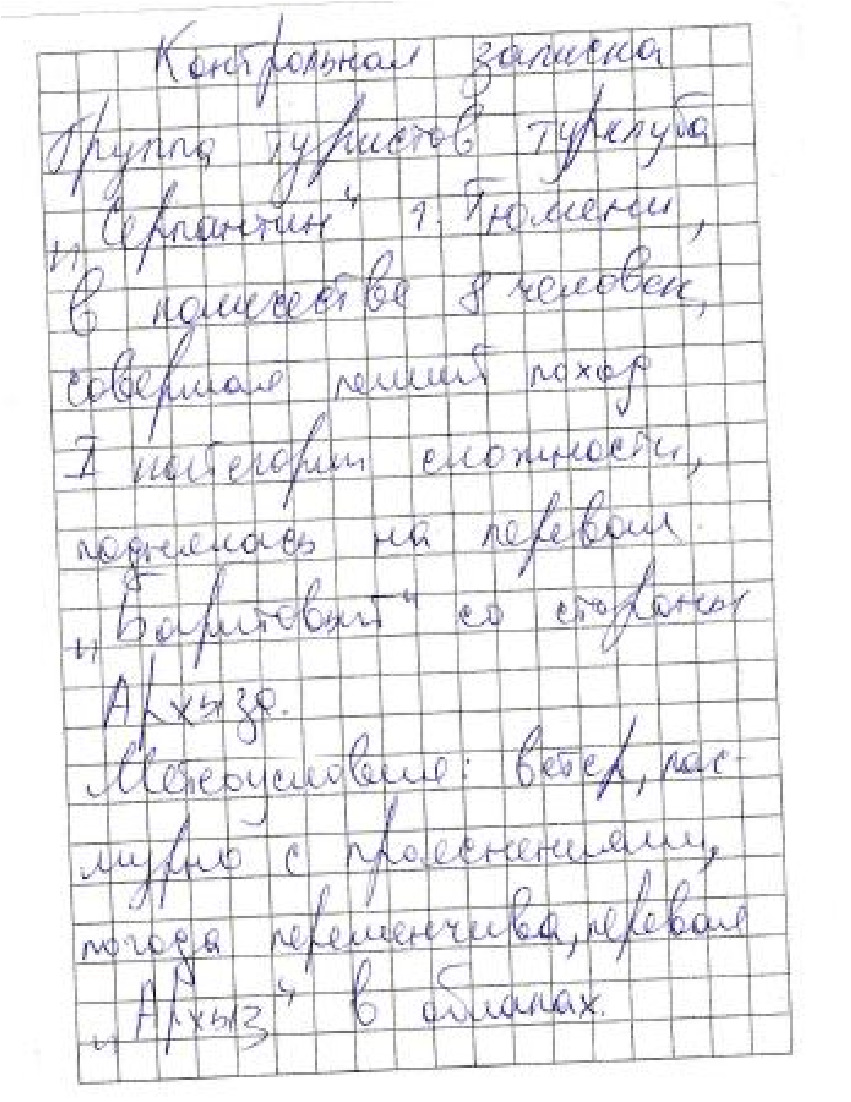 Контрольная записка
Группа туристов турклуба
„Серпантин“ г. Тюмени,
в количестве 8 человек,
совершая пеший поход
I категории сложности,
поднялась на перевал
„Баритовый“ со стороны
Архыза.
Метеоусловия: ветер, пас-
мурно с прояснениями,
погода переменчива, перевал
„Архыз“ в облаках.